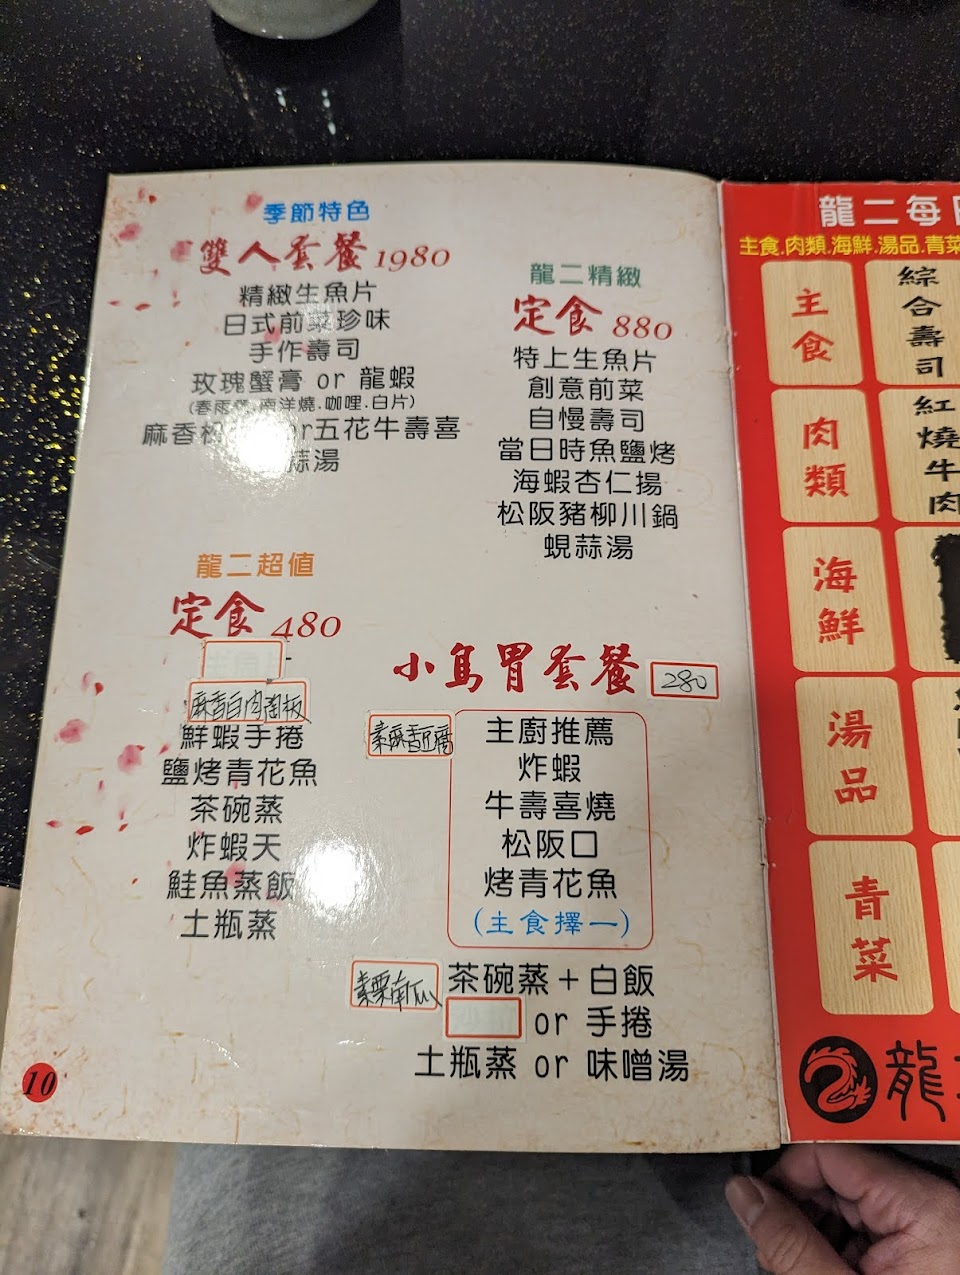 季節特色
雙人套餐 1980
精緻生魚片
日式前菜珍味
手作壽司
玫瑰蟹膏 or 龍蝦
(春雨 南洋燒.咖哩.白片)
麻香 or五花牛壽喜
蒜湯
龍二精緻
定食 880
特上生魚片
創意前菜
自慢壽司
當日時魚鹽烤
海蝦杏仁揚
松阪豬柳川鍋
蜆蒜湯
龍二超值
定食 480
麻香白肉
鮮蝦手捲
鹽烤青花魚
茶碗蒸
炸蝦天
鮭魚蒸飯
土瓶蒸
小鳥胃套餐 280
素酥香豆腐
主廚推薦
炸蝦
牛壽喜燒
松阪口
烤青花魚
(主食擇一)
素栗南瓜
茶碗蒸+白飯
or 手捲
土瓶蒸 or 味噌湯
10
龍二每
主食.肉類.海鮮.湯品.青菜
主食
綜合壽司
肉類
紅燒牛肉
海鮮
湯品
青菜
龍